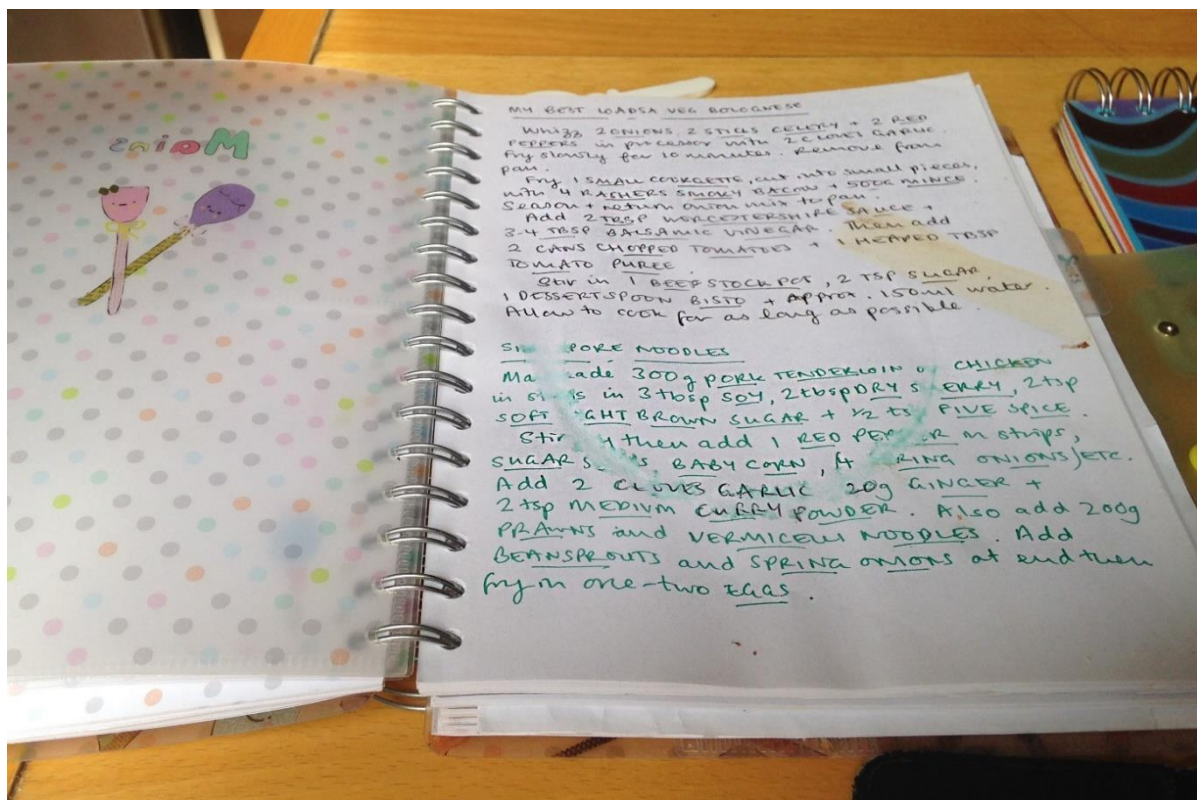 Mains
MY BEST LOADSA VEG BOLOGNESE
Whizz 2 ONIONS, 2 STICKS CELERY + 2 RED
PEPPERS in processor with 2 CLOVES GARLIC.
Fry slowly for 10 minutes. Remove from
pan.
Fry 1 SMALL COURGETTE, cut into small pieces,
with 4 RASHERS SMOKY BACON + 500G MINCE.
Season + return onion mix to pan.
Add 2 TBSP WORCESTERSHIRE SAUCE +
3-4 TBSP BALSAMIC VINEGAR. Then add
2 CANS CHOPPED TOMATOES + 1 HEAPED TBSP
TOMATO PUREE.
Stir in 1 BEEF STOCK POT, 2 TSP SUGAR,
1 DESSERTSPOON BISTO + Approx. 150ml water.
Allow to cook for as long as possible.
NOODLES
300g PORK TENDERLOIN CHICKEN
in in 3 tbsp SOY, 2 tbsp DRY 2 tsp
SOFT BROWN SUGAR + 1/2 FIVE SPICE.
Stir then add 1 RED PEPPER in strips,
SUGAR BABY CORN, 4 ONIONS/ETC.
Add 2 CLOVES GARLIC 20g GINGER +
2 tsp MEDIUM CURRY POWDER. Also add 200g
PRAWNS and VERMICELLI NOODLES. Add
BEANSPROUTS and SPRING ONIONS at end then
fry in one-two EGGS.